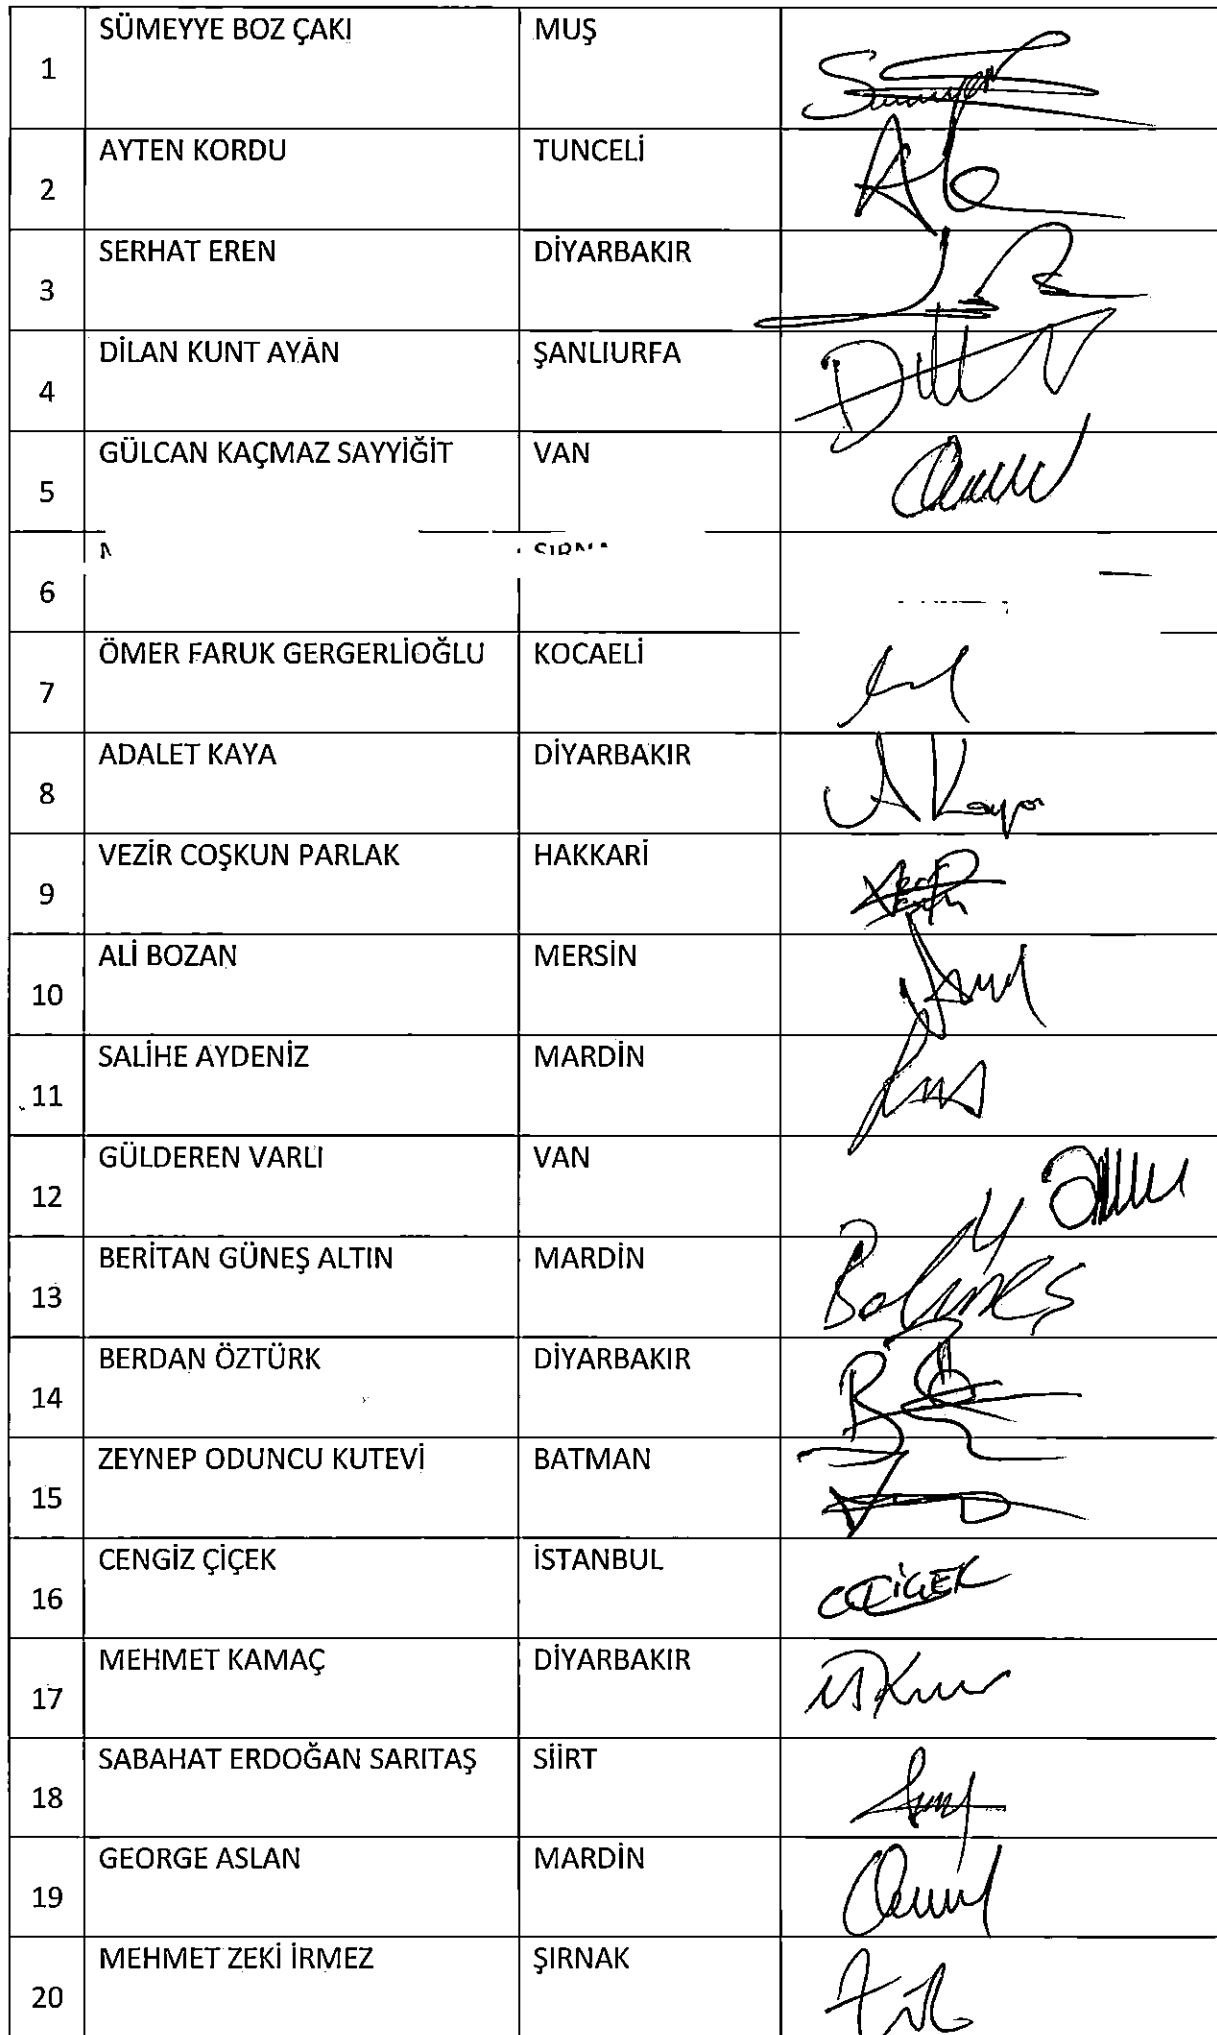 1 SÜMEYYE BOZ ÇAKI MUŞ
2 AYTEN KORDU TUNCELİ
3 SERHAT EREN DİYARBAKIR
4 DİLAN KUNT AYAN ŞANLIURFA
5 GÜLCAN KAÇMAZ SAYYİĞİT VAN
6
7 ÖMER FARUK GERGERLİOĞLU KOCAELİ
8 ADALET KAYA DİYARBAKIR A Kaya
9 VEZİR COŞKUN PARLAK HAKKARİ
10 ALİ BOZAN MERSİN
11 SALİHE AYDENİZ MARDİN
12 GÜLDEREN VARLI VAN
13 BERİTAN GÜNEŞ ALTIN MARDİN
14 BERDAN ÖZTÜRK DİYARBAKIR
15 ZEYNEP ODUNCU KUTEVİ BATMAN
16 CENGİZ ÇİÇEK İSTANBUL
17 MEHMET KAMAÇ DİYARBAKIR
18 SABAHAT ERDOĞAN SARITAŞ SİİRT
19 GEORGE ASLAN MARDİN
20 MEHMET ZEKİ İRMEZ ŞIRNAK